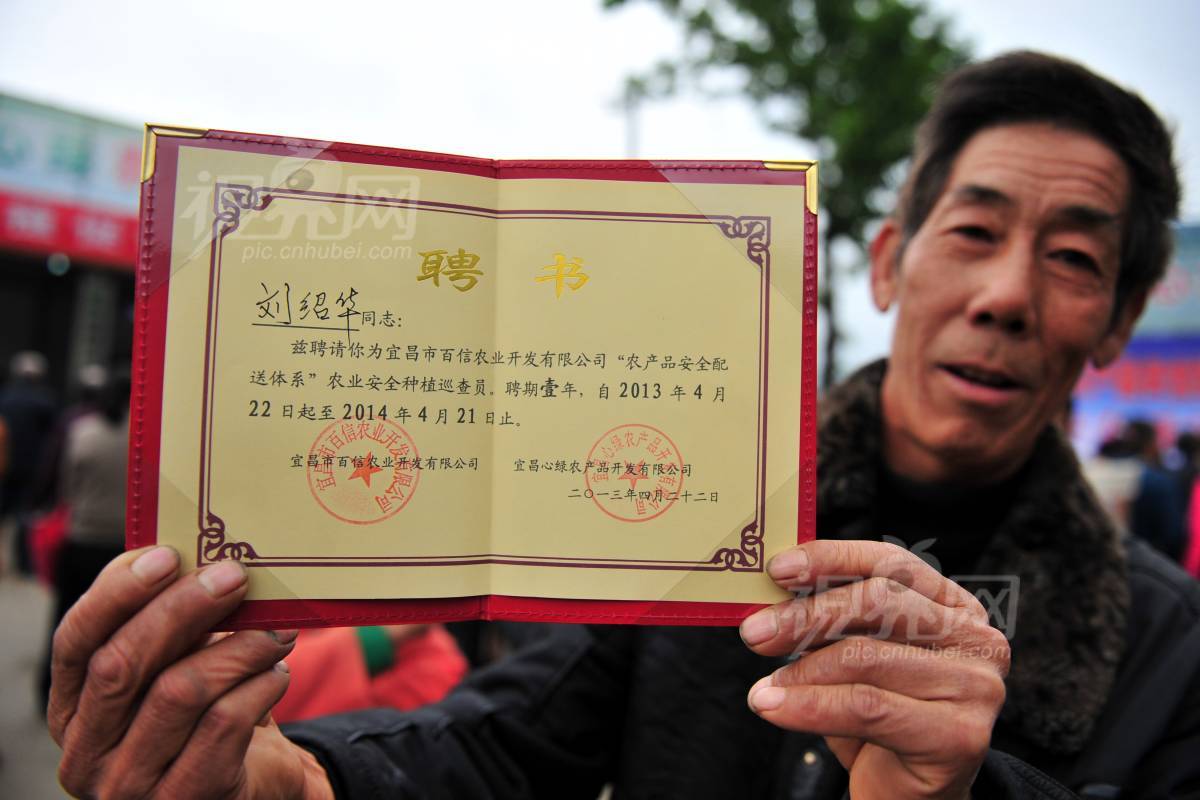 视界网
pic.cnhubei.com
聘书
刘绍华同志：
兹聘请你为宜昌市百信农业开发有限公司“农产品安全配
送体系”农业安全种植巡查员。聘期壹年，自2013年4月
22日起至2014年4月21日止。
宜昌市百信农业开发有限公司
宜昌心绿农产品开发有限公司
二〇一三年四月二十二日
宜昌市百信农业开发有限公司
宜昌心绿农产品开发有限公司
视界网
pic.cnhubei.com